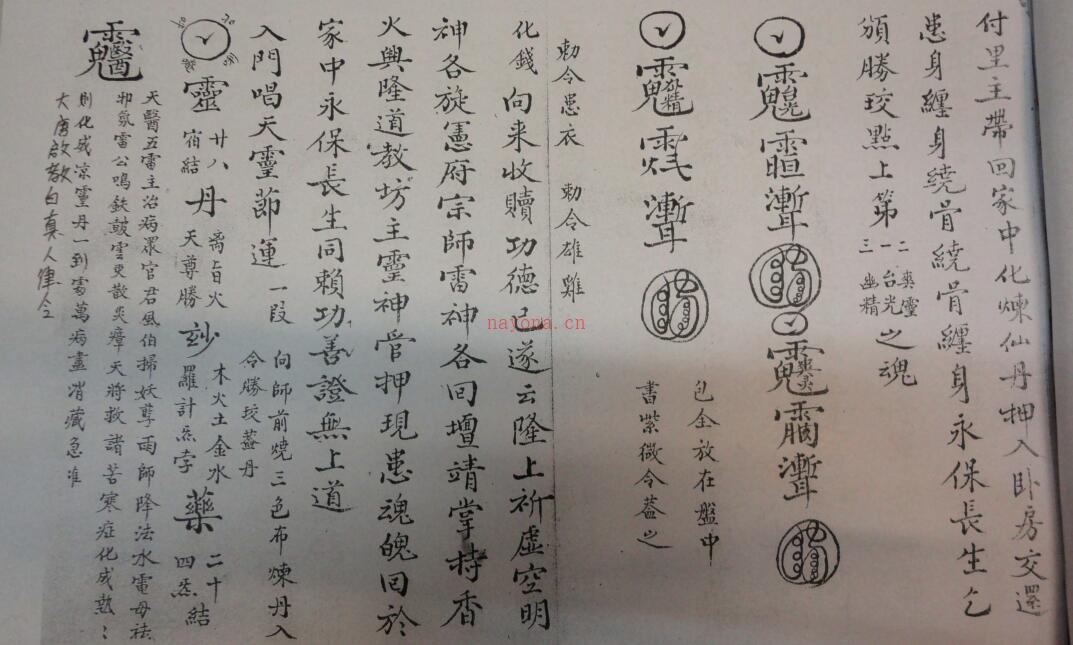 付里主帶回家中化煉仙丹押入卧房交還
患身纏身繞骨繞骨纏身永保長生乞
頒勝珓點上第
三一二
幽台爽
精光靈
之魂
包全放在盤中
書紫微令蓋之
勅令患衣 勅令雄雞
化錢 向来收贖功德已遂云隆上祈虛空明
神各旋憲府宗師雷神各回壇靖掌持香
火興隆道教坊主靈神管押現患魂魄回於
家中永保長生同賴功善證無上道
入門唱天靈節運一段
向師前燒三色布煉丹入
令勝珓蓋丹
靈
廿八
宿結
丹
火
天尊勝
玅
木火土金水
羅計炁孛
藥
二十
四炁結
天醫五雷主治病眾官君風伯掃妖孽雨師降法水電母祛
邪氛雷公鳴鉄鼓雲更散炎瘴天將救諸苦寒症化成熱
則化成凉靈丹一到處萬病盡消藏急准
大唐啟教白真人律令
nayona.cn